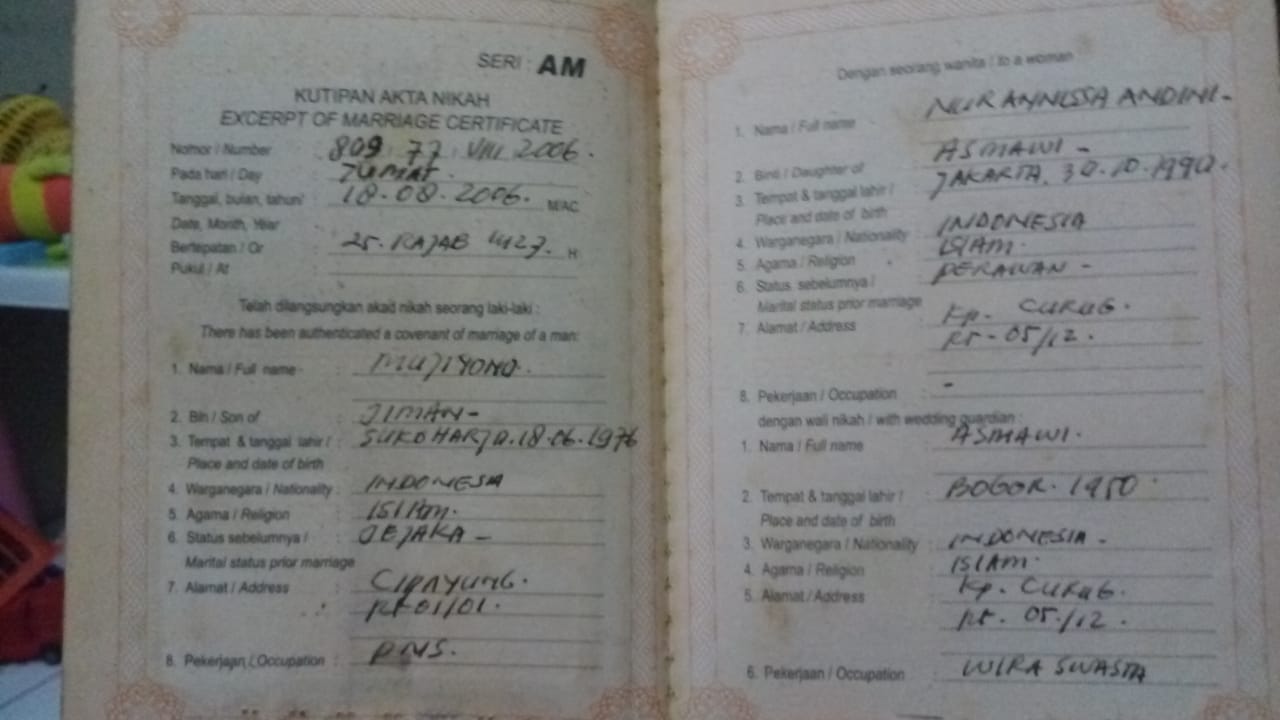 SERI : AM
KUTIPAN AKTA NIKAH
EXCERPT OF MARRIAGE CERTIFICATE
Nomor / Number : 809 . 77 . VIII 2006 .
Pada hari / Day : JUMAT .
Tanggal, bulan, tahun/ : 18-08-2006. M/AC
Date, Month, Year
Bertepatan / Or : 25. RAJAB 1427. H
Pukul / At :
Telah dilangsungkan akad nikah seorang laki-laki :
There has been authenticated a covenant of marriage of a man:
1. Nama / Full name : MUJIYONO.
2. Bin / Son of : JIMAN -
3. Tempat & tanggal lahir / : SUKOHARJO. 18-06-1976
Place and date of birth
4. Warganegara / Nationality : INDONESIA
5. Agama / Religion : ISLAM.
6. Status sebelumnya / : JEJAKA -
Marital status prior marriage
7. Alamat / Address : CIPAYUNG.
RT 01/01.
8. Pekerjaan / Occupation : PNS.
Dengan seorang wanita / to a woman
1. Nama / Full name : NUR ANNISSA ANDINI -
2. Binti / Daughter of : ASMAWI -
3. Tempat & tanggal lahir / : JAKARTA, 30-10-1990.
Place and date of birth
4. Warganegara / Nationality : INDONESIA
5. Agama / Religion : ISLAM.
6. Status sebelumnya / : PERAWAN -
Marital status prior marriage
7. Alamat / Address : Kp. CURUG.
RT - 05/12.
8. Pekerjaan / Occupation : -
dengan wali nikah / with wedding guardian :
1. Nama / Full name : ASMAWI.
2. Tempat & tanggal lahir / : BOGOR. 1950
Place and date of birth
3. Warganegara / Nationality : INDONESIA -
4. Agama / Religion : ISLAM.
5. Alamat / Address : Kp. CURUG.
RT. 05./12.
6. Pekerjaan / Occupation : WIRA SWASTA